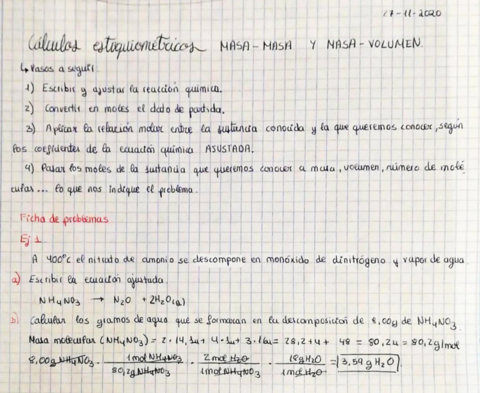 17-11-2020
Cálculos estequiométricos MASA-MASA Y MASA-VOLUMEN
↳ Pasos a seguir:
1) Escribir y ajustar la reacción química.
2) Convertir en moles el dato de partida.
3) Aplicar la relación molar entre la sustancia conocida y la que queremos conocer, según
los coeficientes de la ecuación química AJUSTADA.
4) Pasar los moles de la sustancia que queremos conocer a masa, volumen, número de molé
culas... lo que nos indique el problema.
Ficha de problemas
Ej 1.
A 400ºC el nitrato de amonio se descompone en monóxido de dinitrógeno y vapor de agua
a) Escribir la ecuación ajustada
NH4NO3 → N2O + 2H2O(g)
b) Calcular los gramos de agua que se formaran en la descomposición de 8,00g de NH4NO3
Masa molecular (NH4NO3) = 2·14,1u + 4·1u + 3·16u = 28,2+4 + 48 = 80,2u = 80,2g/mol
8,00g NH4NO3 · 1mol NH4NO3/80,2g NH4NO3 · 2mol H2O/1mol NH4NO3 · 18g H2O/1mol H2O = 3,59g H2O